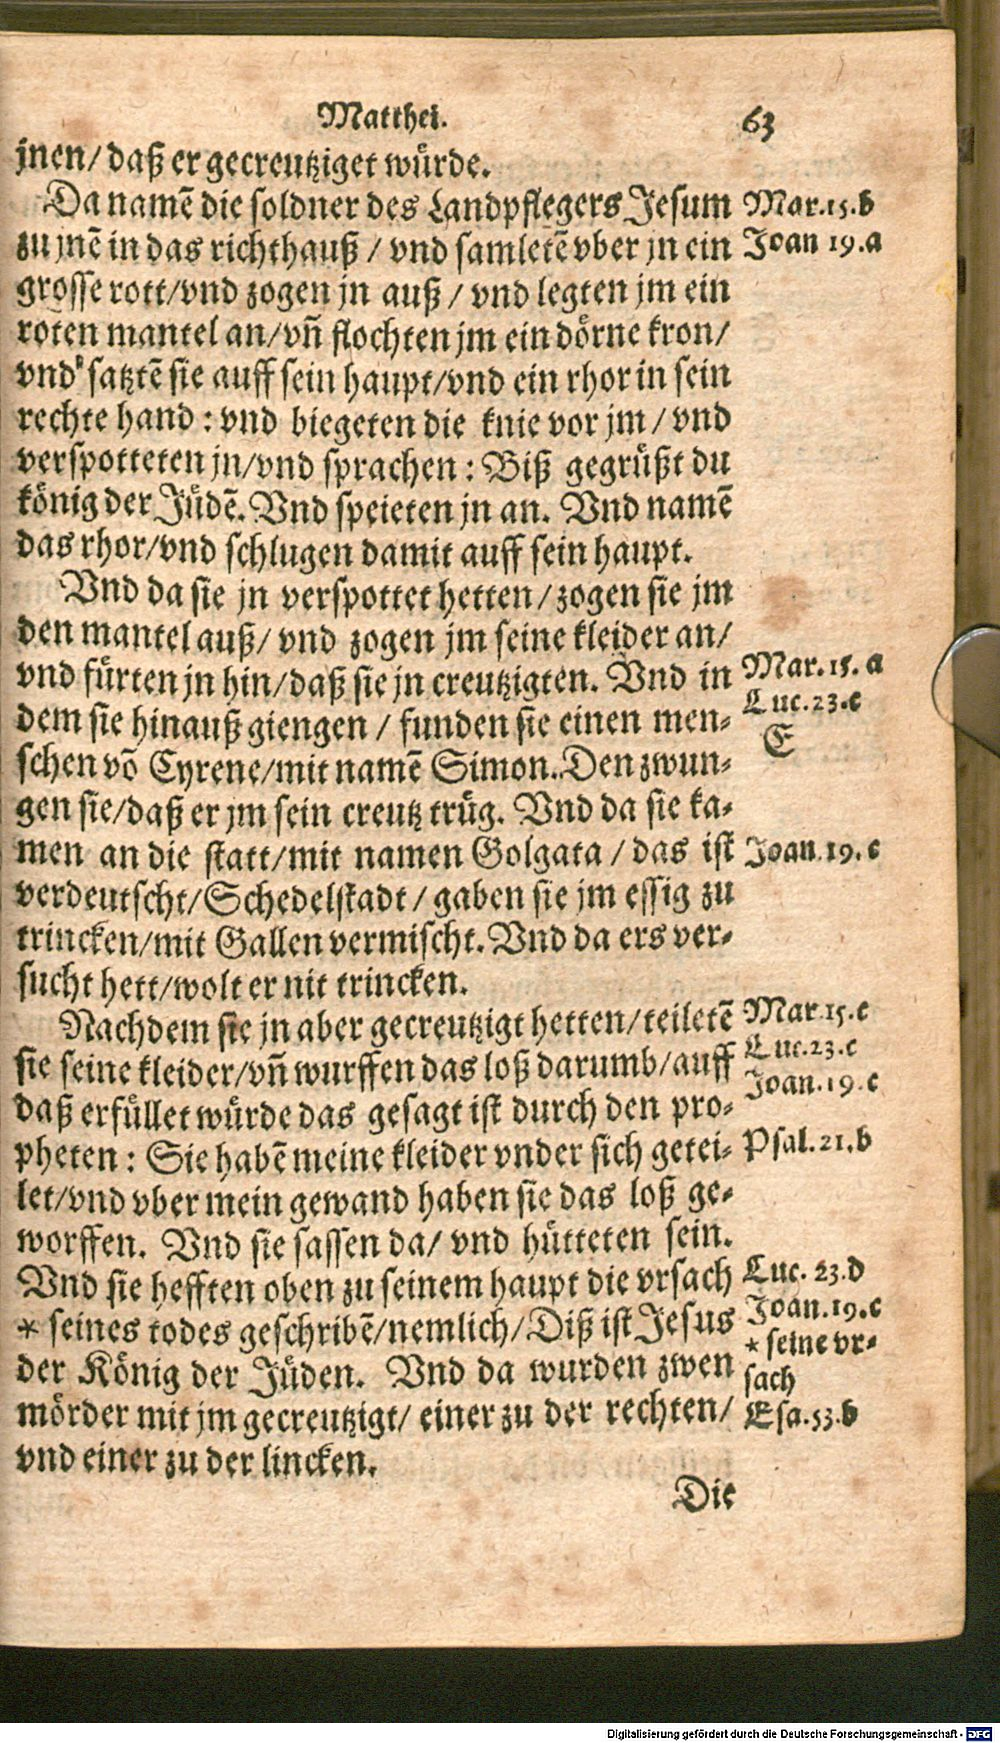 Matthei. 63
jnen/ daß er gecreutziget würde.
Da namẽ die soldner des Landpflegers Jesum
zu jnẽ in das richthauß / vnd samletẽ vber jn ein
grosse rott/vnd zogen jn auß / vnd legten jm ein
roten mantel an/vñ flochten jm ein dörne kron/
vnd satztẽ sie auff sein haupt/vnd ein rhor in sein
rechte hand : vnd biegeten die knie vor jm / vnd
verspotteten jn/vnd sprachen : Biß gegrüßt du
könig der Jüdẽ. Vnd speieten jn an. Vnd namẽ
das rhor/vnd schlugen damit auff sein haupt.
Vnd da sie jn verspottet hetten/ zogen sie jm
den mantel auß/ vnd zogen jm seine kleider an/
vnd fürten jn hin/daß sie jn creutzigten. Vnd in
dem sie hinauß giengen / funden sie einen men⸗
schen võ Cyrene/mit namẽ Simon. Den zwun⸗
gen sie/daß er jm sein creutz trüg. Vnd da sie ka⸗
men an die statt/mit namen Golgata / das ist
verdeutscht/Schedelstadt / gaben sie jm essig zu
trincken/mit Gallen vermischt. Vnd da ers ver⸗
sucht hett/wolt er nit trincken.
Nachdem sie jn aber gecreutzigt hetten/teiletẽ
sie seine kleider/vñ wurffen das loß darumb/auff
daß erfüllet würde das gesagt ist durch den pro⸗
pheten : Sie habẽ meine kleider vnder sich getei⸗
let/vnd vber mein gewand haben sie das loß ge⸗
worffen. Vnd sie sassen da/ vnd hütteten sein.
Vnd sie hefften oben zu seinem haupt die vrsach
* seines todes geschribẽ/nemlich/Diß ist Jesus
der König der Jüden. Vnd da wurden zwen
mörder mit jm gecreutzigt/ einer zu der rechten/
vnd einer zu der lincken.
Die
Mar.15.b
Joan 19.a
Mar.15.a
Luc.23.c
E
Joan.19.c
Mar.15.c
Luc.23.c
Joan.19.c
Psal.21.b
Luc.23.d
Joan.19.c
* seine vr⸗
sach
Esa.53.b
Digitalisierung gefördert durch die Deutsche Forschungsgemeinschaft - DFG